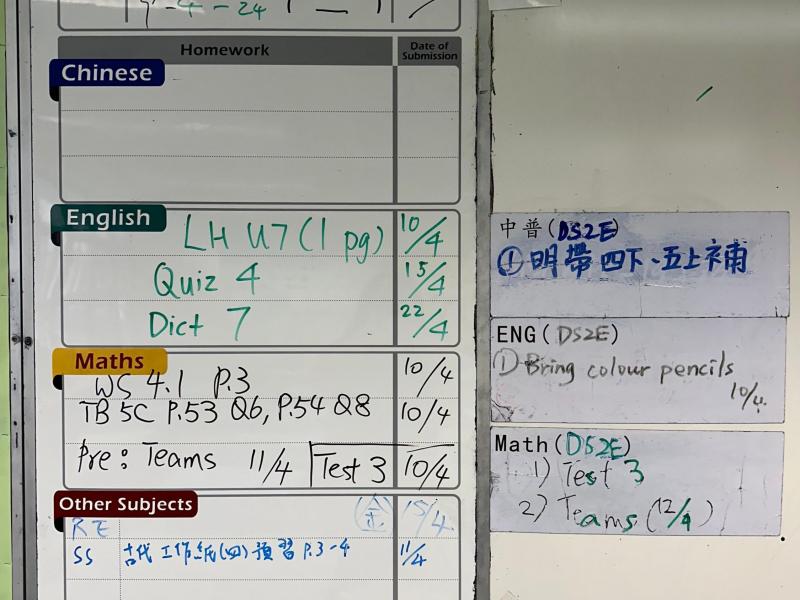 -4-24
Homework
Date of Submission
Chinese
English
LH U7 (1 pg) 10/4
Quiz 4 15/4
Dict 7 22/4
Maths
WS 4.1 P.3 10/4
TB 5C P.53 Q6, P.54 Q8 10/4
Pre: Teams 11/4 Test 3 10/4
Other Subjects
RE (金) 15/4
SS 古代工作紙(四)預習 P.3-4 11/4
中普(DS2E)
① 明帶四下、五上補
ENG(DS2E)
① Bring colour pencils
10/4
Math(DS2E)
1) Test 3
2) Teams (12/4)